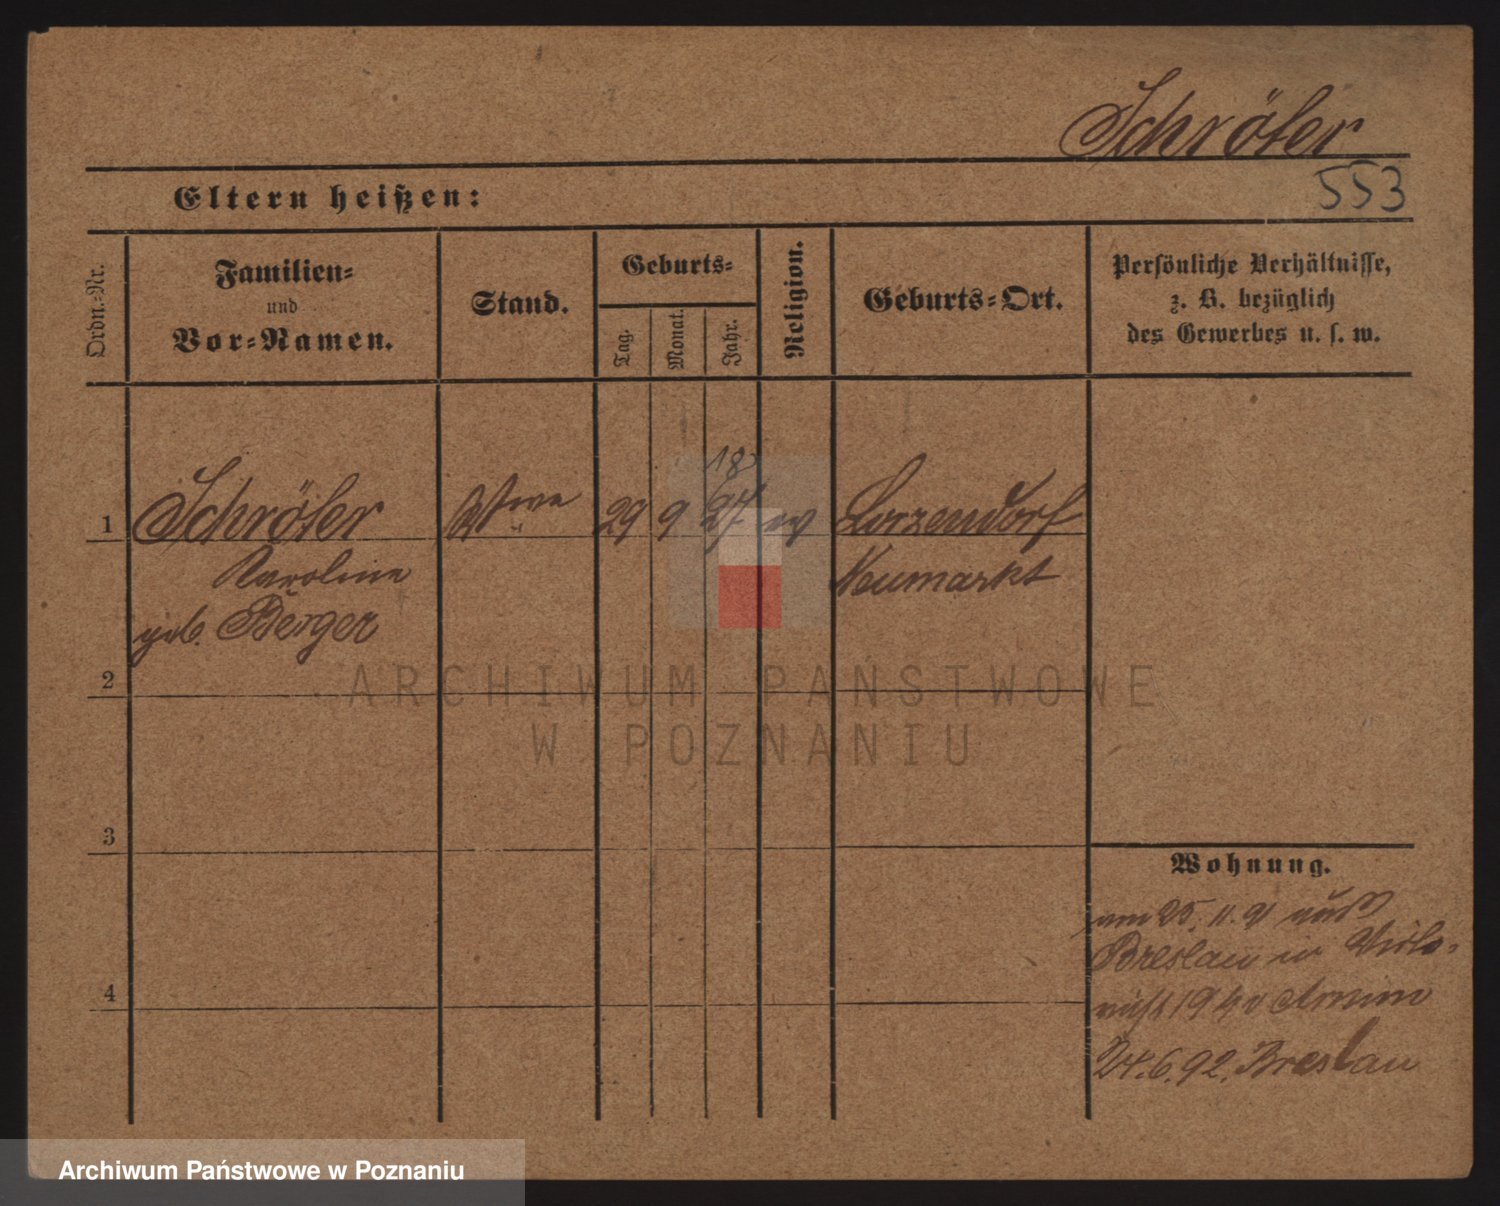 Schröter
553
Eltern heißen:
Ordn.-Nr.
Familien-
und
Vor-Namen.
Stand.
Geburts-
Tag.
Monat.
Jahr.
Religion.
Geburts-Ort.
Persönliche Verhältnisse,
z. B. bezüglich
des Gewerbes u. s. w.
18
1 Schröter Wwe 29 9 27 ev Lorzendorf
Karoline Neumarkt
geb. Berger
2
ARCHIWUM PAŃSTWOWE
W POZNANIU
3
Wohnung.
am 25. 11. 91 aus
Breslau in
4
24.6.92. Breslau
Archiwum Państwowe w Poznaniu